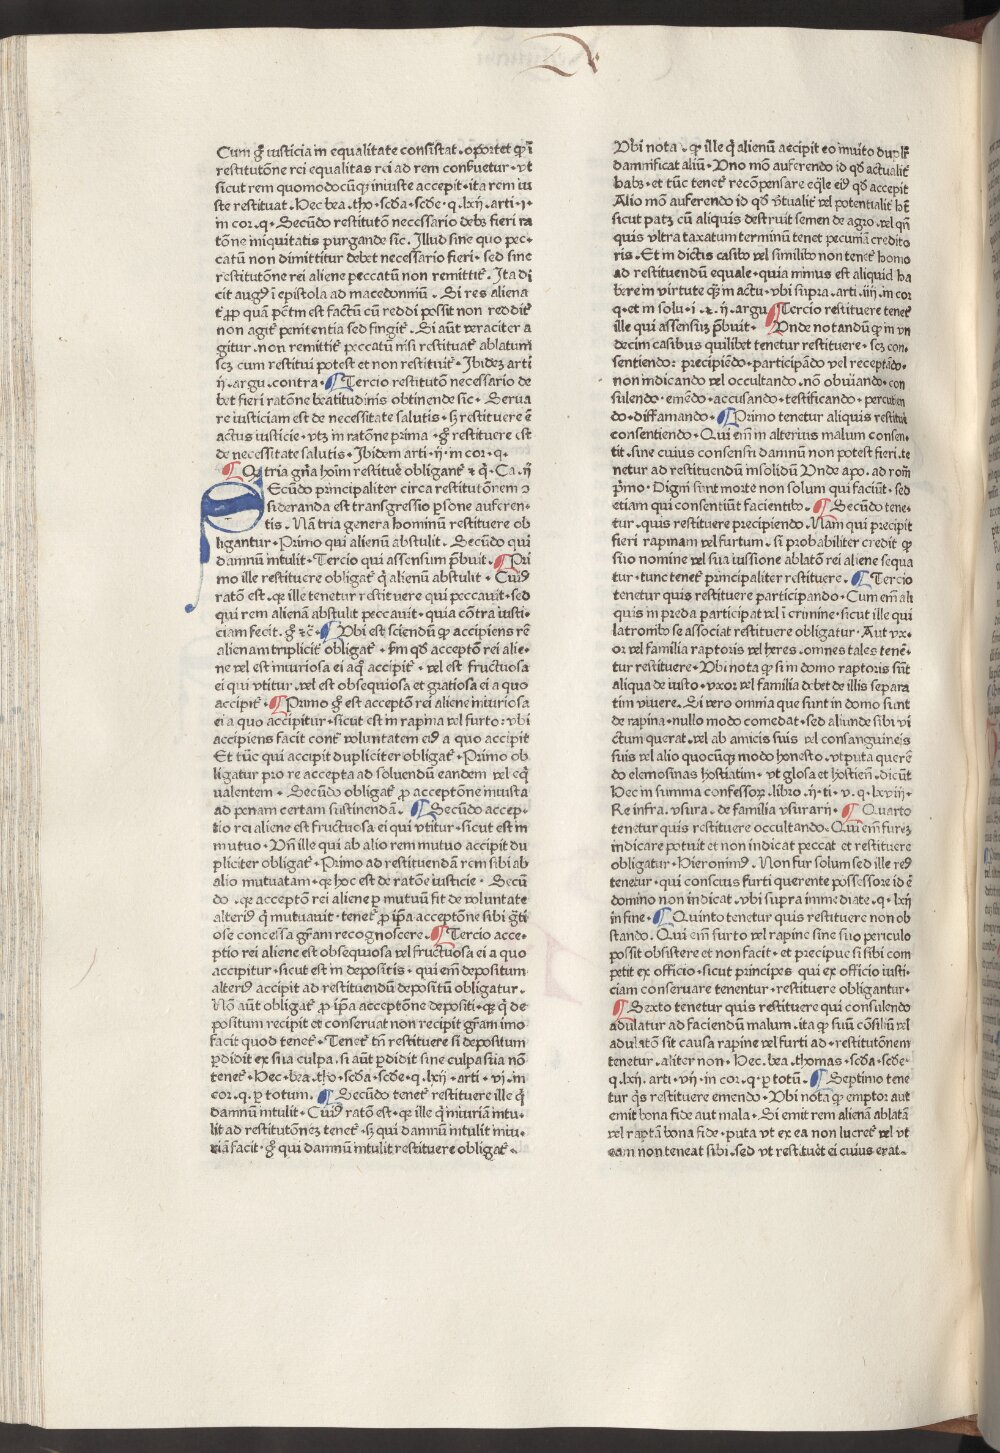 Cum g̃ iusticia in equalitate consistat . oportet ꝙ ĩ
restitutōne rei equalitas rei ad rem conẜuetur · vt
sicut rem quomodocūqꝫ iniuste accepit · ita rem iu
ste restituat · Hec bea · tho · scďa · scďe · q · lxij · arti · i ·
in cor · q · Secūdo restitutō necessario debꝫ fieri ra
tōne iniquitatis purgande sic . Illud sine quo pec-
catū non dimittitur debet necessario fieri · sed sine
restitutōne rei aliene peccatū non remittit̃ . Ita di
cit augꝰ ĩ epistola ad macedoniū . Si res aliena
ꝓp quā pc̃tm est factū cū reddi possit non reddit̃
non agit̃ penitentia sed fingit̃ . Si aūt veraciter a
gitur · non remittit̃ peccatū nisi restituat̃ ablatum
scꝫ cum restitui potest et non restituit̃ · Ibidē arti
ij · argu · contra · Tercio restitutō necessario de
bet fieri ratōne beatitudinis obtinende sic · Serua
re iusticiam est de necessitate salutis · ꝫ restituere ē
actus iusticie · vtꝫ in ratōne prima · g̃ restituere est
de necessitate salutis · Ibidem arti · ij · in cor · q ·
Qꝫ tria gña hoīm restituẽ obligant̃ ⁊ q̃ · Ca · ij
Secūdo principaliter circa restitutōrem ɔ
sideranda est transgressio ꝑsone auferen-
tis · Nā tria genera hominū restituere ob
ligantur · Primo qui alienū abstulit · Secūdo qui
damnū intulit · Tercio qui assensum p̃buit · Pri
mo ille restituere obligat̃ q̃ alienū abstulit · Cuiꝰ
ratō est · qꝛ ille tenetur restituere qui peccauit · sed
qui rem alienā abstulit peccauit · quia cōtra iusti-
ciam fecit · g̃ ⁊c̃ · Vbi est sciendū ꝙ accipiens rē
alienam tripliciť obligat̃ · ẜm qꝰ acceptō rei alie-
ne vel est iniuriosa ei a q̊ accipit̃ · vel est fructuosa
ei qui vtitur . vel est obsequiosa et gratiosa ei a quo
accipit̃ · Primo g̃ est acceptō rei aliene iniuriosa
ei a quo accipitur · sicut est in rapina vel furto : vbi
accipiens facit cont̃ voluntatem eiꝰ a quo accipit
Et tūc qui accipit dupliciter obligat̃ · Primo ob
ligatur pro re accepta ad soluendū eandem vel eq̃
ualentem · Secūdo obligat̃ ꝓ acceptōne iniusta
ad penam certam sustinendā . Secūdo accep-
tio rei aliene est fructuosa ei qui vtitur · sicut est in
mutuo · Vñ ille qui ab alio rem mutuo accipit du
pliciter obligat̃ · Primo ad restituendā rem sibi ab
alio mutuatam · qꝛ hoc est de ratōne iusticie · Secū
do · qꝛ acceptō rei aliene ꝑ mutuū fit de voluntate
alteriꝰ q̃ mutuauit · tenet̃ ꝓ ip̃a acceptōne sibi g̃ti
ose concessa gr̃am recognoscere . Tercio acce-
ptio rei aliene est obsequiosa vel fructuosa ei a quo
accipitur · sicut est in depositis · qui em̃ depositum
alteriꝰ accipit ad restituendū depositū obligatur .
Nō aūt obligat̃ ꝓ ip̃a acceptōne depositi · qꝛ q̃ de
positum recipit et conseruat non recipit gr̃am imo
facit quod tenet̃ · Tenet̃ tñ restituere si depositum
ꝑdidit ex sua culpa . si aūt ꝑdidit sine culpa sua nō
tenet̃ · Hec · bea · tho · scďa · scďe · q · lxij · arti · vi · in
cor · q · ꝑ totum . Secūdo tenet̃ restituere ille q̃
damnū intulit · Cuiꝰ ratō est · qꝛ ille q̃ iniuriā intu-
lit ad restitutōnē tenet̃ · ꝫ qui damnū intulit iniu-
riā facit · g̃ qui damnū intulit restituere obligat̃ ·
Vbi nota · ꝙ ille q̃ alienū accipit eo inuito dupľr
damnificat aliū · Vno mō auferendo id qꝰ actualiť
habꝫ · et tūc tenet̃ recōpensare eq̃le eiꝰ qꝰ accepit
Alio mō auferendo id qꝰ ṽtualiť vel potentialiť hꝫ
sicut patꝫ cū aliquis destruit semen de agro · vel qñ
quis vltra taxatum terminū tenet pecuniā credito
ris . Et in dictis casibꝰ vel similibꝰ non tenet̃ homo
ad restituendū equale · quia minus est aliquid ha
bere in virtute qꝫ in actu · vbi supra . arti . iiij . in cor
q · et in solu · i · ⁊ · ij · argu Tercio restituere tenet̃
ille qui assensuꝫ p̃buit · Vnde notandū ꝙ in vn
decim casibus quilibet tenetur restituere · scꝫ con-
sentiendo : precipiēdo · participādo vel receptādo ·
non indicando vel occultando . nō obuiando · con
sulendo · emēdo · accusando · testificando · percutien
do · diffamando · Primo tenetur aliquis restitue
consentiendo · Qui em̃ in alterius malum consen-
tit · sine cuius consensu damnū non potest fieri . te
netur ad restituendū insolidū Vnde apo . ad rom̃
p̃mo · Digni sunt morte non solum qui faciūt · sed
etiam qui consentiūt facientibꝰ . Secūdo tene-
tur · quis restituere precipiendo . Nam qui precipit
fieri rapinam vel furtum . si probabiliter credit ꝙ
suo nomine vel sua iussione ablatō rei aliene sequa
tur · tunc tenet̃ principaliter restituere . Tercio
tenetur quis restituere participando · Cum em̃ ali
quis in preda participat vel ĩ crimine · sicut ille qui
latronibꝰ se associat restituere obligatur · Aut vx-
or vel familia raptoris vel heres · omnes tales tenē-
tur restituere · Vbi nota ꝙ si in domo raptoris sūt
aliqua de iusto · vxor vel familia debet de illis separa
tim viuere . Si vero omnia que sunt in domo sunt
de rapina · nullo modo comedat · sed aliunde sibi vi
ctum querat . vel ab amicis suis vel consanguineis
suis vel alio quocūqꝫ modo honesto . vt puta querē
do elemosinas hostiatim · vt glosa et hostieñ . dicūt
Hec in summa confessoꝝ . libro · ij · ti · v · q · lxviij ·
Re infra . vsura . de familia vsurarij · Quarto
tenetur quis restituere occultando . Qui em̃ fureꝫ
indicare potuit et non indicat peccat et restituere
obligatur · Hieronimꝰ . Non fur solum sed ille reꝰ
tenetur · qui conscius furti querente possessore id ē
domino non indicat . vbi supra immediate . q · lxij
in fine · Quinto tenetur quis restituere non ob
stando . Qui em̃ furto vel rapine sine suo periculo
possit obsistere et non facit · et precipue si sibi com
petit ex officio · sicut principes qui ex officio iusti-
ciam conseruare tenentur · restituere obligantur ·
Sexto tenetur quis restituere qui consulendo
adulatur ad faciendū malum . ita ꝙ suū cōsiliū vel
adulatō sit causa rapine vel furti ad · restitutōnem
tenetur . aliter non · Hec . bea . thomas · scďa · scďe ·
q · lxij . arti · vij · in cor . q · ꝑ totū . Septimo tene
tur qs restituere emendo · Vbi nota ꝙ emptor aut
emit bona fide aut mala · Si emit rem alienā ablatā
vel raptā bona fide · puta vt ex ea non lucret̃ vel vt
eam non teneat sibi . sed vt restituẽt ei cuius erat .